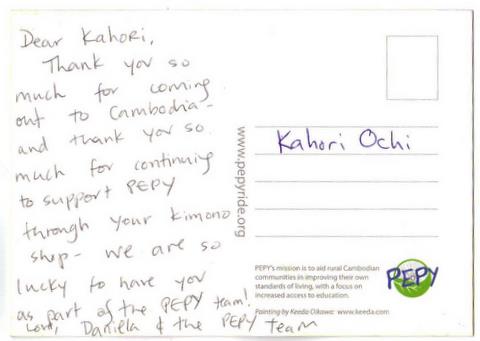 Dear Kahori,
Thank you so
much for coming
out to Cambodia -
and thank you so
much for continuing
to support PEPY
through your kimono
shop - we are so
lucky to have you
as part of the PEPY team!
Love, Daniela & the PEPY team
www.pepyride.org
Kahori Ochi
PEPY's mission is to aid rural Cambodian
communities in improving their own
standards of living, with a focus on
increased access to education.
PEPY
Painting by Keeda Oikawa www.keeda.com